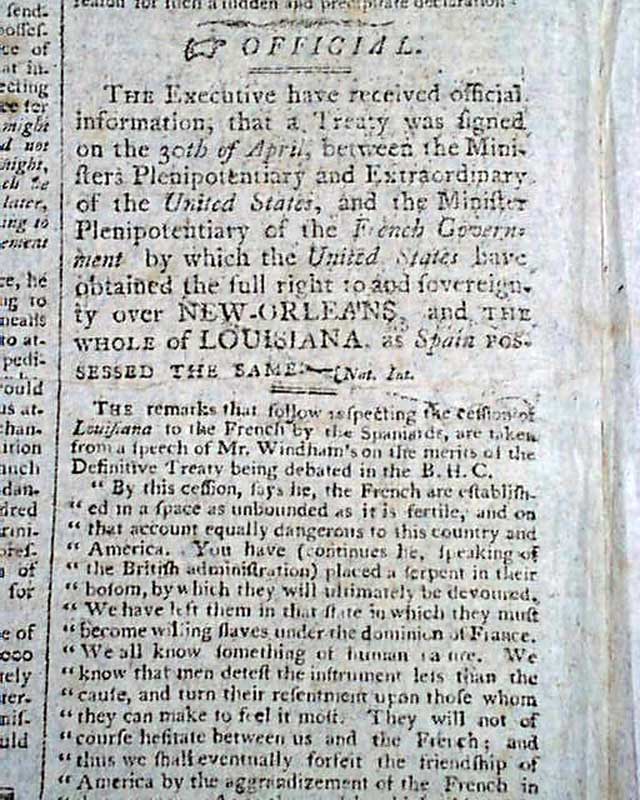 reason for such a sudden and precipitate declaration.
☞ OFFICIAL.
THE Executive have received official
information, that a Treaty was ſigned
on the 30th of April, between the Mini-
ſters Plenipotentiary and Extraordinary
of the United States, and the Miniſter
Plenipotentiary of the French Govern-
ment by which the United States have
obtained the full right to and ſovereign-
ty over NEW-ORLEANS, and THE
WHOLE of LOUISIANA, as Spain POS-
SESSED THE SAME.—[Nat. Int.
THE remarks that follow reſpecting the ceſſion of
Louiſiana to the French by the Spaniards, are taken
from a ſpeech of Mr. Windham's on the merits of the
Definitive Treaty being debated in the B. H. C.
" By this ceſſion, ſays he, the French are eſtabliſh-
" ed in a ſpace as unbounded as it is fertile, and on
" that account equally dangerous to this country and
" America. You have (continues he, ſpeaking of
" the Britiſh adminiſtration) placed a ſerpent in their
" boſom, by which they will ultimately be devoured.
" We have left them in that ſtate in which they muſt
" become willing ſlaves under the dominion of France.
" We all know ſomething of human nature. We
" know that men deteſt the inſtrument leſs than the
" cauſe, and turn their reſentment upon thoſe whom
" they can make to feel it moſt. They will not of
" courſe heſitate between us and the French; and
" thus we ſhall eventually forfeit the friendſhip of
" America by the aggrandizement of the French in